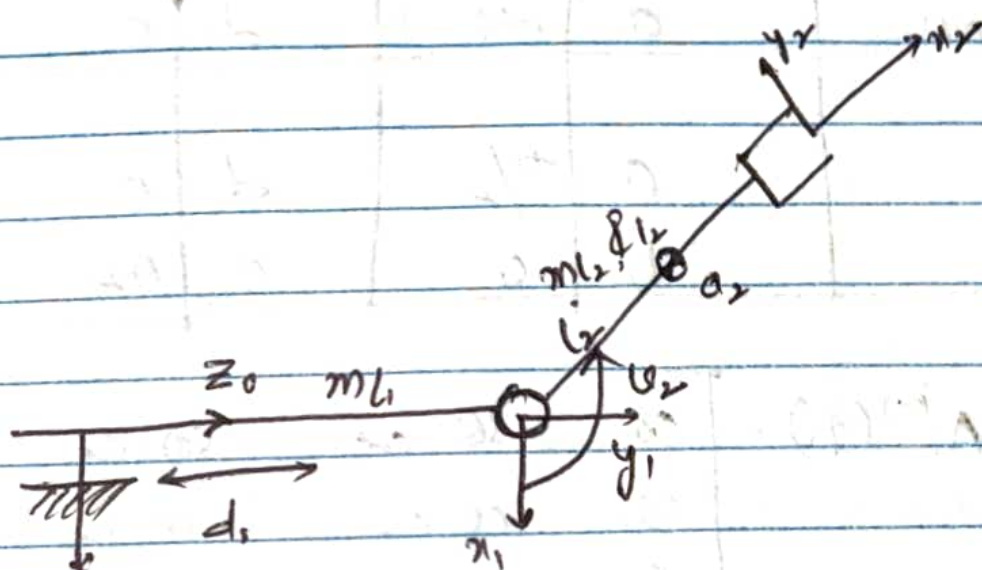 y₂ x₂
m_l₂, I_l₂
a₂
l₂
z₀ m_l₁ υ₂
y₁
d₁
x₁